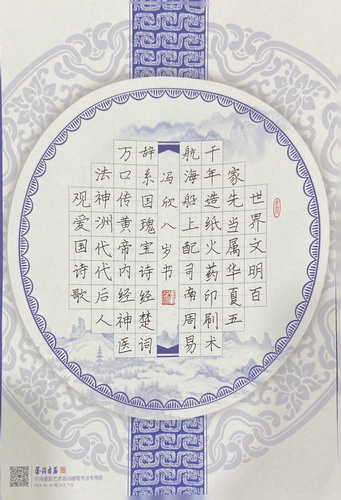 世界文明百
家先当属华夏五
千年造纸火药印刷术
航海船上配司南周易
冯欣八岁书
辞系国瑰宝诗经楚词
万口传黄帝内经神医
法神洲代代后人
观爱国诗歌
艺术培训硬笔书法专用纸